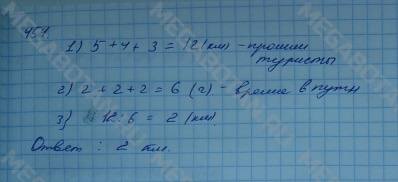 459.
1) 5 + 4 + 3 = 12 (км) - прошли
туристы
2) 2 + 2 + 2 = 6 (г) - время в пути
3) 12 : 6 = 2 (км).
Ответ : 2 км.